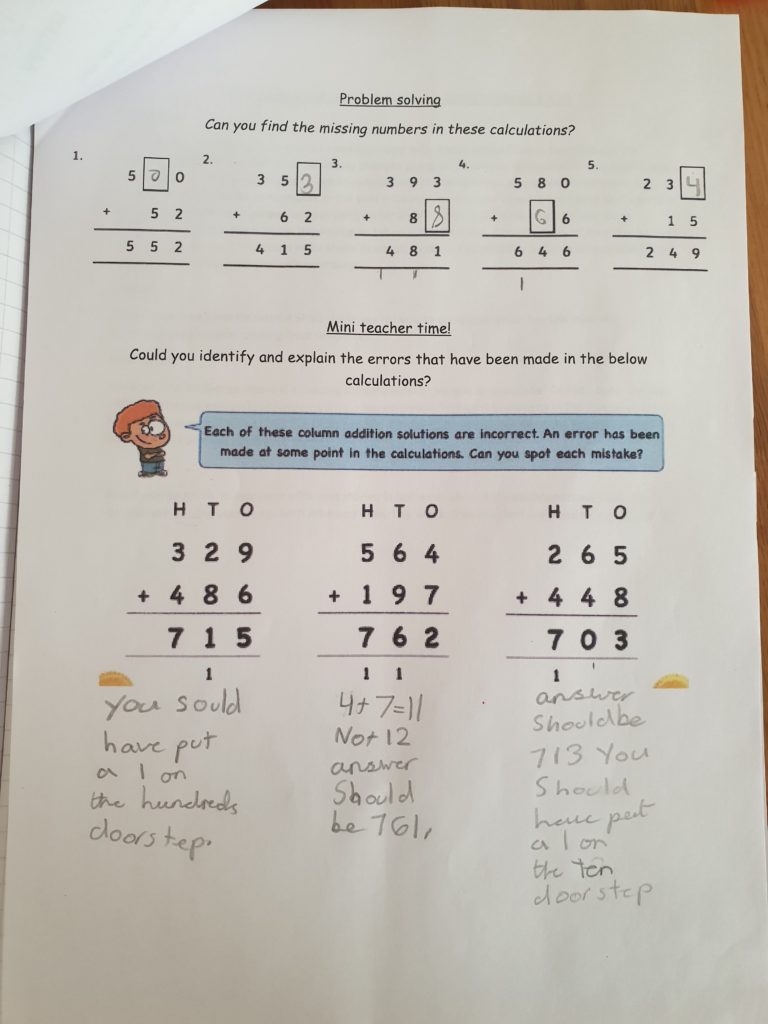 Problem solving
Can you find the missing numbers in these calculations?
1. 2. 3. 4. 5.
5 0 0 3 5 3 3 9 3 5 8 0 2 3 4
+ 5 2 + 6 2 + 8 8 + 6 6 + 1 5
5 5 2 4 1 5 4 8 1 6 4 6 2 4 9
1 1 1
Mini teacher time!
Could you identify and explain the errors that have been made in the below
calculations?
Each of these column addition solutions are incorrect. An error has been
made at some point in the calculations. Can you spot each mistake?
H T O H T O H T O
3 2 9 5 6 4 2 6 5
+ 4 8 6 + 1 9 7 + 4 4 8
7 1 5 7 6 2 7 0 3
1 1 1 1 1
you sould
have put
a 1 on
the hundreds
doorstep.
4+7=11
Not 12
answer
Should
be 761,
answer
Should be
713 You
Should
have peet
a 1 on
the ten
doorstep